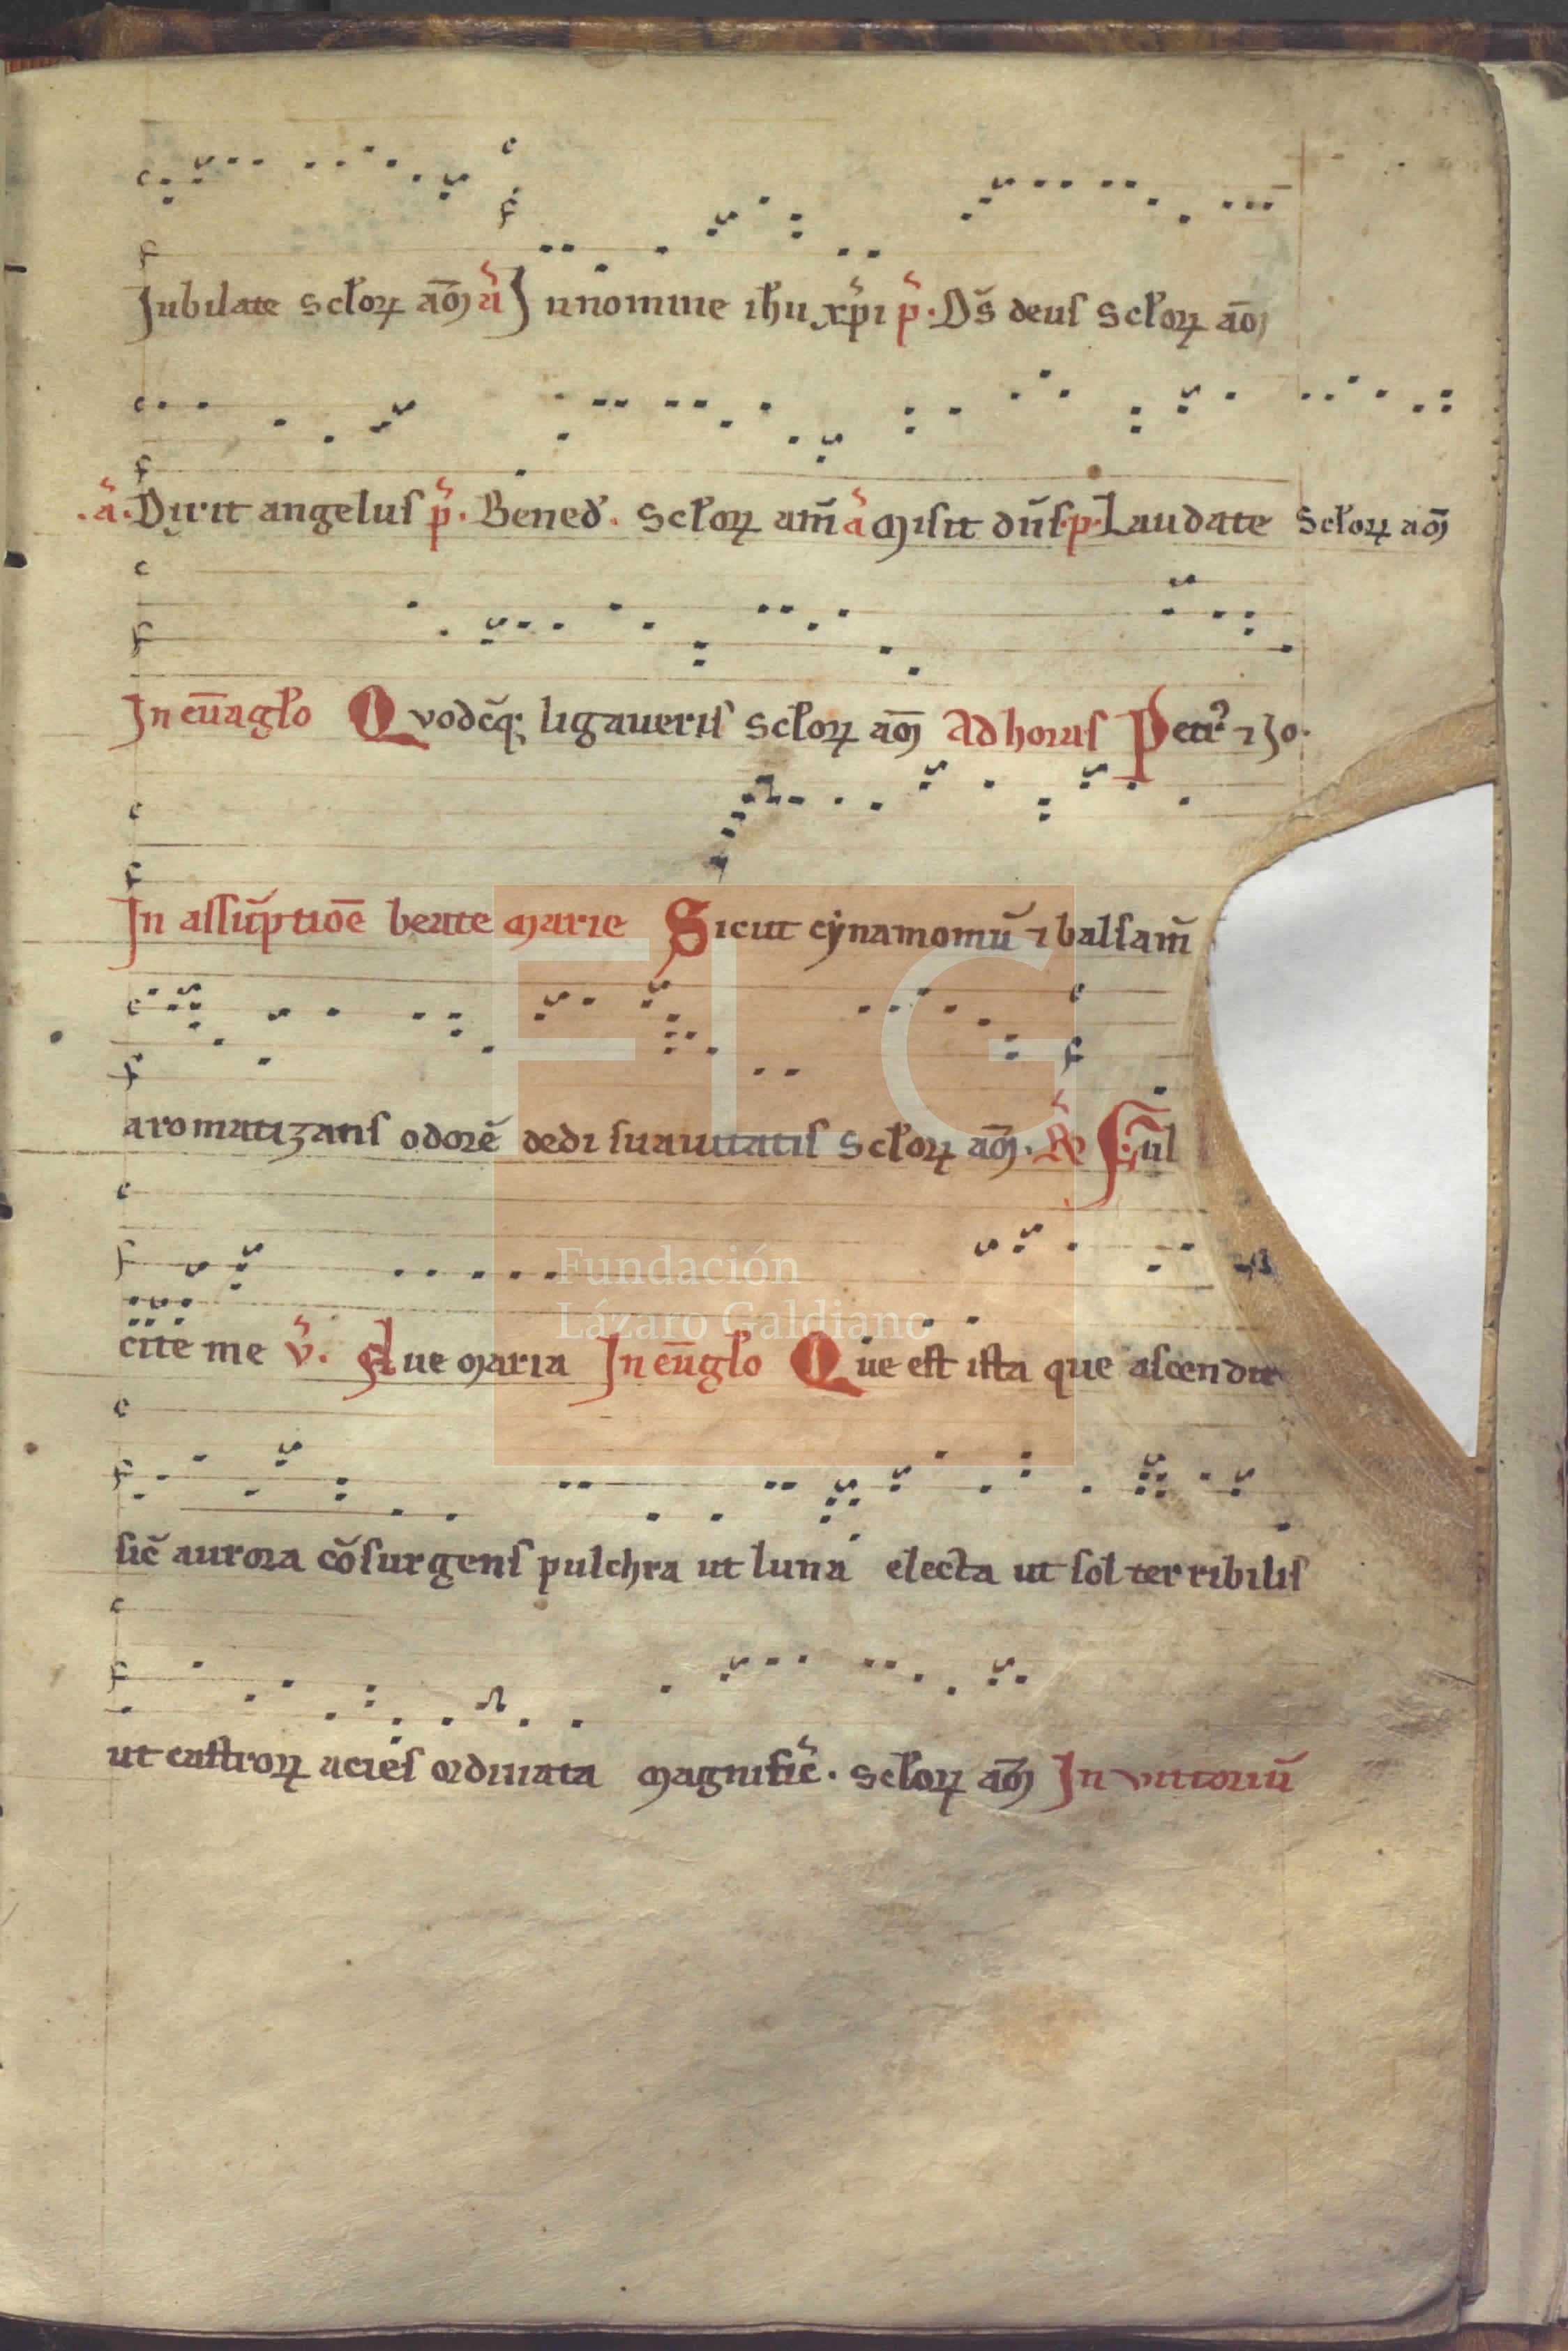 Jubilate scłoꝝ aōm ã J n nomine ihu xp̃i p̃. Ds̃ deus scłoꝝ aōm
.ã. Dixit angelus p̃. Bened̃. scłoꝝ am̃ ã Misit dñs .p. Laudate scłoꝝ aōm
In eūagło Q vodcq̃; ligaueris scłoꝝ aōm Ad horas Petrꝰ ⁊ Jo.
In assũptiōe beate Marie Sicut cẏnamomũ ⁊ balsam̃
aromatizans odorẽ dedi suauitatis scłoꝝ aōm. R̃
cite me ṽ. Aue Maria In eūgło Que est ista que ascendit
sic̃ aurora cõsurgens pulchra ut luna electa ut sol terribilis
ut castroꝝ acies ordinata Magnific̃. scłoꝝ aōm In vitatoriũ
FLG
Fundación
Lázaro Galdiano